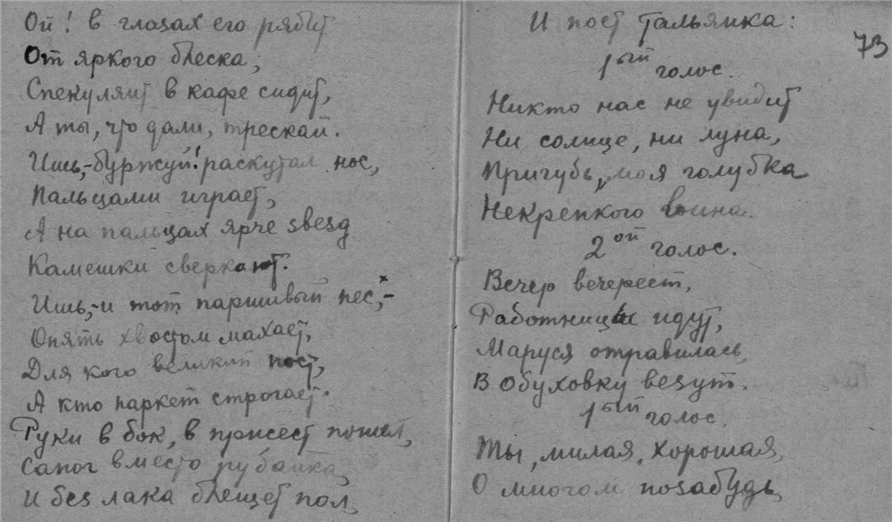 Ой! в глазах его рябит
От яркого блеска,
Спекулянт в кафе сидит,
А ты, что дали, трескай.
Ишь,-буржуй! раскутал нос,
Пальцами играет,
А на пальцах ярче звезд
Камешки сверкают.
Ишь,-и тот паршивый пес,-
Опять хвостом махает,
Для кого великий пост,
А кто паркет строгает.
Руки в бок, в присест пошел,
Сапог вместо рубанка,
И без лака блещет пол,
И поет тальянка:
73
1ый голос.
Никто нас не увидит
Ни солнце, ни луна,
Пригубь, моя голубка
Некрепкого вина.
2ой голос.
Вечер вечереет,
Работницы идут,
Маруся отравилась,
В Обуховку везут.
1ый голос.
Ты, милая, хорошая,
О многом позабудь,